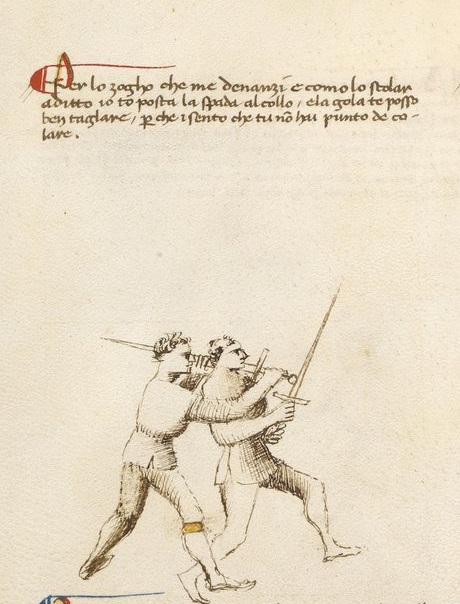 Per lo zogho che me denanzi e como lo scolar
a ditto io to posta la spada al collo / e la gola te posso
ben taglare / p che i sento che tu nō hai punto de co-
lare.